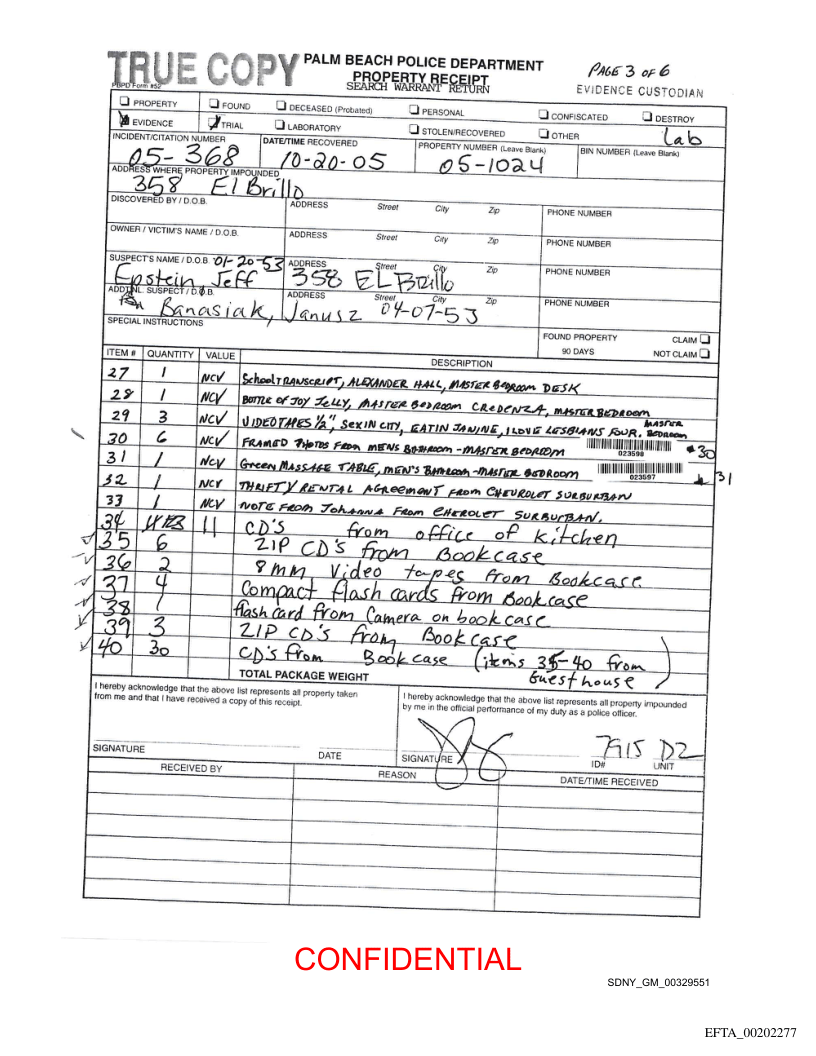 TRUE COPY
PALM BEACH POLICE DEPARTMENT
PROPERTY RECEIPT
SEARCH WARRANT RETURN
PAGE 3 OF 6
EVIDENCE CUSTODIAN
PBPD Form #52
PROPERTY FOUND DECEASED (Probated) PERSONAL CONFISCATED DESTROY
EVIDENCE TRIAL LABORATORY STOLEN/RECOVERED OTHER Lab
INCIDENT/CITATION NUMBER DATE/TIME RECOVERED PROPERTY NUMBER (Leave Blank) BIN NUMBER (Leave Blank)
05-368 10-20-05 05-1024
ADDRESS WHERE PROPERTY IMPOUNDED
358 El Brillo
DISCOVERED BY / D.O.B. ADDRESS Street City Zip PHONE NUMBER
OWNER / VICTIM'S NAME / D.O.B. ADDRESS Street City Zip PHONE NUMBER
SUSPECT'S NAME / D.O.B 01-20-53 ADDRESS Street City Zip PHONE NUMBER
Epstein, Jeff 358 EL Brillo
ADDTNL. SUSPECT / D.O.B. ADDRESS Street City Zip PHONE NUMBER
Banasiak, Janusz 04-07-53
SPECIAL INSTRUCTIONS
FOUND PROPERTY CLAIM
90 DAYS NOT CLAIM
ITEM # QUANTITY VALUE DESCRIPTION
27 1 NCV School TRANSCRIPT, ALEXANDER HALL, MASTER BEDROOM DESK
28 1 NCV BOTTLE OF JOY JELLY, MASTER BEDROOM CREDENZA, MASTER BEDROOM
29 3 NCV VIDEOTAPES 1/2", SEX IN CITY, EATIN JANINE, I LOVE LESBIANS FOUR, MASTER BEDROOM
30 6 NCV FRAMED PHOTOS FROM MENS BATHROOM - MASTER BEDROOM 023598 #30
31 1 NCV GREEN MASSAGE TABLE, MEN'S BATHROOM - MASTER BEDROOM 023597 31
32 1 NCV THRIFTY RENTAL AGREEMENT FROM CHEVROLET SURBURBAN
33 1 NCV NOTE FROM JOHANNA FROM CHEROLET SURBURBAN.
34 11 CD'S from office of kitchen
35 6 ZIP CD'S from Bookcase
36 2 8mm Video tapes from Bookcase
37 4 Compact flash cards from Bookcase
38 1 flash card from Camera on bookcase
39 3 ZIP CD'S from Bookcase
40 30 CD'S from Bookcase (items 35-40 from Guesthouse)
TOTAL PACKAGE WEIGHT
I hereby acknowledge that the above list represents all property taken
from me and that I have received a copy of this receipt.
I hereby acknowledge that the above list represents all property impounded
by me in the official performance of my duty as a police officer.
7915 D2
SIGNATURE DATE SIGNATURE ID# UNIT
RECEIVED BY REASON DATE/TIME RECEIVED
CONFIDENTIAL
SDNY_GM_00329551
EFTA_00202277